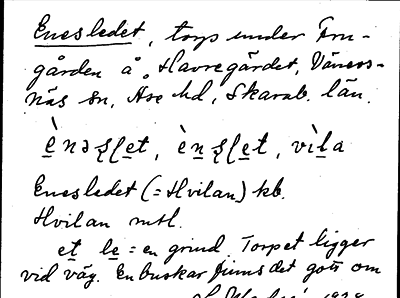 Enesledet, torp under Fru-
gården å Havregärdet, Väners-
näs sn, Åse hd, Skarab. län.
Enesledet (= Hvilan) kb.
Hvilan mtl.
et le = en grind. Torpet ligger
vid väg. Enbuskar finns det gott om